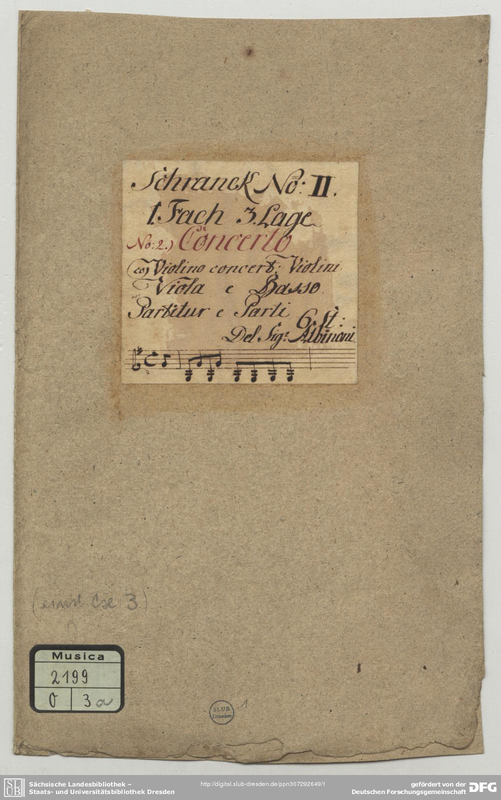 Schranck No: II.
1. Fach 3. Lage
No: 2.) Concerto
co Violino concert: Violini
Viola e Basso
Partitur e Parti
6. St.
Del Sigr. Albinoni
3)
Musica
2199
O 3a
SLUB
Dresden
1
SLUB
Sächsische Landesbibliothek –
Staats- und Universitätsbibliothek Dresden
http://digital.slub-dresden.de/ppn307292649/1
gefördert von der
Deutschen Forschungsgemeinschaft
DFG